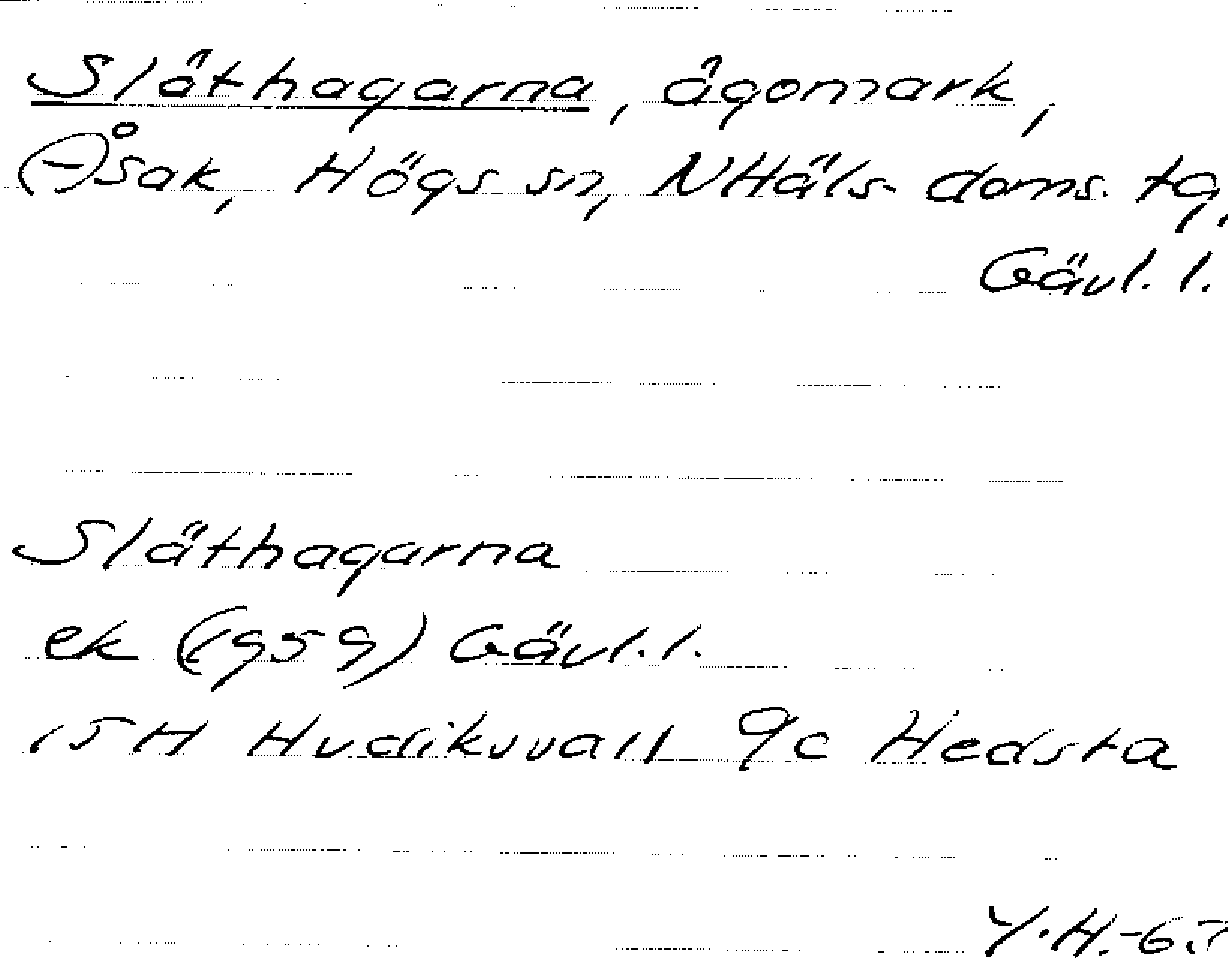 Släthagarna, ägomark,
(-)Åsak, Högs sn, NHäls. doms. tg,
Gävl. l.
Släthagarna
ek (1959) Gävl. l.
15H Hudiksvall 9c Hedsta